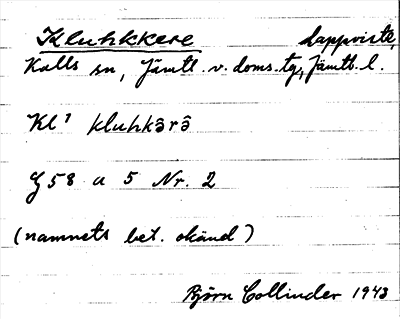 Kluhkkere lappviste,
Kalls sn, Jämtl. v. doms. tg, Jämtl. l.
Kl¹ kluhkə̂rə̂
G 58 a 5 Nr. 2
(namnets bet. okänd)
Björn Collinder 1943